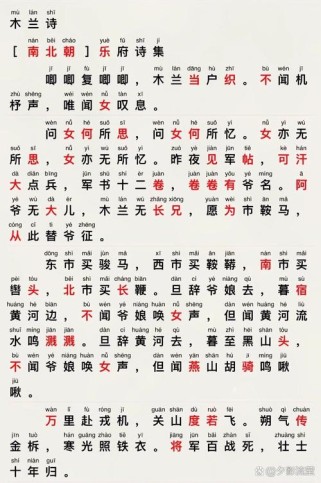 mù lán shī
木兰诗
nán běi cháo yuè fǔ shī jí
[ 南北朝 ] 乐府诗集
jī jī fù jī jī mù lán dāng hù zhī bù wén jī
唧唧复唧唧，木兰当户织。不闻机
zhù shēng wéi wén nǚ tàn xī
杼声，唯闻女叹息。
wèn nǚ hé suǒ sī wèn nǚ hé suǒ yì nǚ yì wú
问女何所思，问女何所忆。女亦无
suǒ sī nǚ yì wú suǒ yì zuó yè jiàn jūn tiě kè hán
所思，女亦无所忆。昨夜见军帖，可汗
dà diǎn bīng jūn shū shí èr juàn juàn juàn yǒu yé míng ā
大点兵，军书十二卷，卷卷有爷名。阿
yé wú dà ér mù lán wú zhǎng xiōng yuàn wéi shì ān mǎ
爷无大儿，木兰无长兄，愿为市鞍马，
cóng cǐ tì yé zhēng
从此替爷征。
dōng shì mǎi jùn mǎ xī shì mǎi ān jiān nán shì mǎi
东市买骏马，西市买鞍鞯，南市买
pèi tóu běi shì mǎi cháng biān dàn cí yé niáng qù mù sù
辔头，北市买长鞭。旦辞爷娘去，暮宿
huáng hé biān bù wén yé niáng huàn nǚ shēng dàn wén huáng hé liú
黄河边，不闻爷娘唤女声，但闻黄河流
shuǐ míng jiān jiān dàn cí huáng hé qù mù zhì hēi shān tóu
水鸣溅溅。旦辞黄河去，暮至黑山头，
bù wén yé niáng huàn nǚ shēng dàn wén yān shān hú jì míng jiū
不闻爷娘唤女声，但闻燕山胡骑鸣啾
jiū
啾。
wàn lǐ fù róng jī guān shān dù ruò fēi shuò qì chuán
万里赴戎机，关山度若飞。朔气传
jīn tuò hán guāng zhào tiě yī jiāng jūn bǎi zhàn sǐ zhuàng shì
金柝，寒光照铁衣。将军百战死，壮士
shí nián guī
十年归。